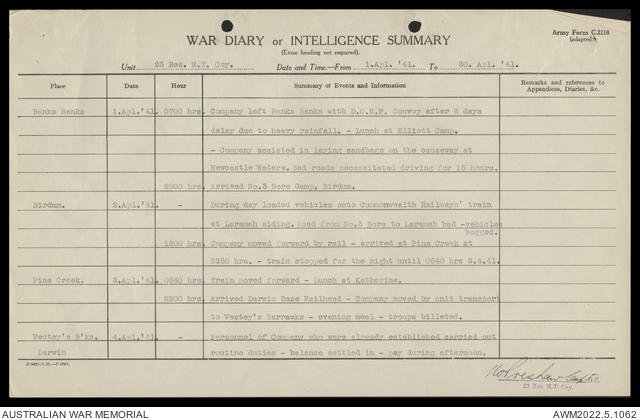 Army Form C.2118
(adapted)
WAR DIARY or INTELLIGENCE SUMMARY
(Erase heading not required).
Unit 23 Res. M.T. Coy. Date and Time.—From 1.Apl. '41. To 30. Apl. '41.
Place Date Hour Summary of Events and Information Remarks and references to Appendices, Diaries, &c.
Banka Banka 1.Apl.'41 0700 hrs. Company left Banka Banka with D.O.M.F. Convoy after 8 days
delay due to heavy rainfall. - Lunch at Elliott Camp.
- Company assisted in laying sandbags on the causeway at
Newcastle Waters. Bad roads necessitated driving for 15 hours.
2200 hrs Arrived No.3 Bore Camp, Birdum.
Birdum. 2.Apl.'41. - During day loaded vehicles onto Commonwealth Railways' train
at Laramah siding. Road from No.3 Bore to Laramah bad -vehicles
bogged.
1800 hrs Company moved forward by rail - arrived at Pine Creek at
2350 hrs. - train stopped for the night until 0640 hrs 3.4.41.
Pine Creek. 3.Apl.'41. 0640 hrs. Train moved forward - Lunch at Katherine.
2200 hrs Arrived Darwin Base Railhead - Company moved by unit transport
to Vestey's Barracks - evening meal - troops billeted.
Vestey's B'ks. 4.Apl.'41. - Personnel of Company who were already established carried out
Darwin routine duties - balance settled in - pay during afternoon.
Capt O.C.
23 Res. M.T. Coy.
AUSTRALIAN WAR MEMORIAL AWM2022.5.1062